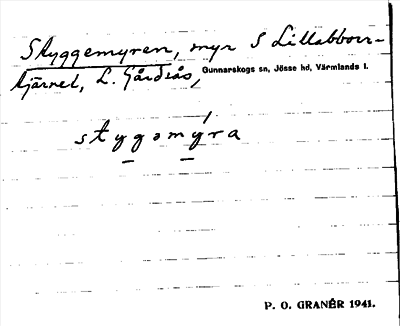 Styggemyren, myr S Lillabborr-
tjärnet, L. Gårdsås, Gunnarskogs sn, Jösse hd, Värmlands l.
stygəmýra
P. O. GRANÉR 1941.